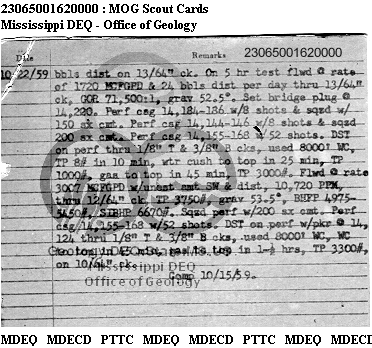 23065001620000 : MOG Scout Cards
Mississippi DEQ - Office of Geology
Date Remarks 23065001620000
10/22/59 bbls dist on 13/64" ck. On 5 hr test flwd @ rate
of 1720 MCFGPD & 24 bbls dist per day thru 13/64"
ck, GOR 71,500:1, grav 52.5°. Set bridge plug @
14,220. Perf csg 14,184-186 w/8 shots & sqzd w/
150 sx cmt. Perf csg 14,144-146 w/8 shots & sqzd
200 sx cmt. Perf csg 14,155-168 w/52 shots. DST
on perf thru 1/8" T & 3/8" B cks, used 8000' WC,
TP 8# in 10 min, wtr cush to top in 25 min, TP
1000#, gas to top in 45 min, TP 3000#. Flwd @ rate
3007 MCFGPD w/unest amt SW & dist, 10,720 PPM,
thru 12/64" ck TP 3750#, grav 53.5°, BHFP 4975-
5450#, SIBHP 6670#. Sqzd perf w/200 sx cmt. Perf
csg 14,155-168 w/52 shots. DST on perf w/pkr @ 14,
124 thru 1/8" T & 3/8" B cks, used 8000' WC, WC
to top in 45 min, gas to top in 1-½ hrs, TP 3300#,
on 10/64" ck.
Mississippi DEQ
Office of Geology
Comp 10/15/59.
MDEQ MDECD PTTC MDEQ MDECD PTTC MDEQ MDECD